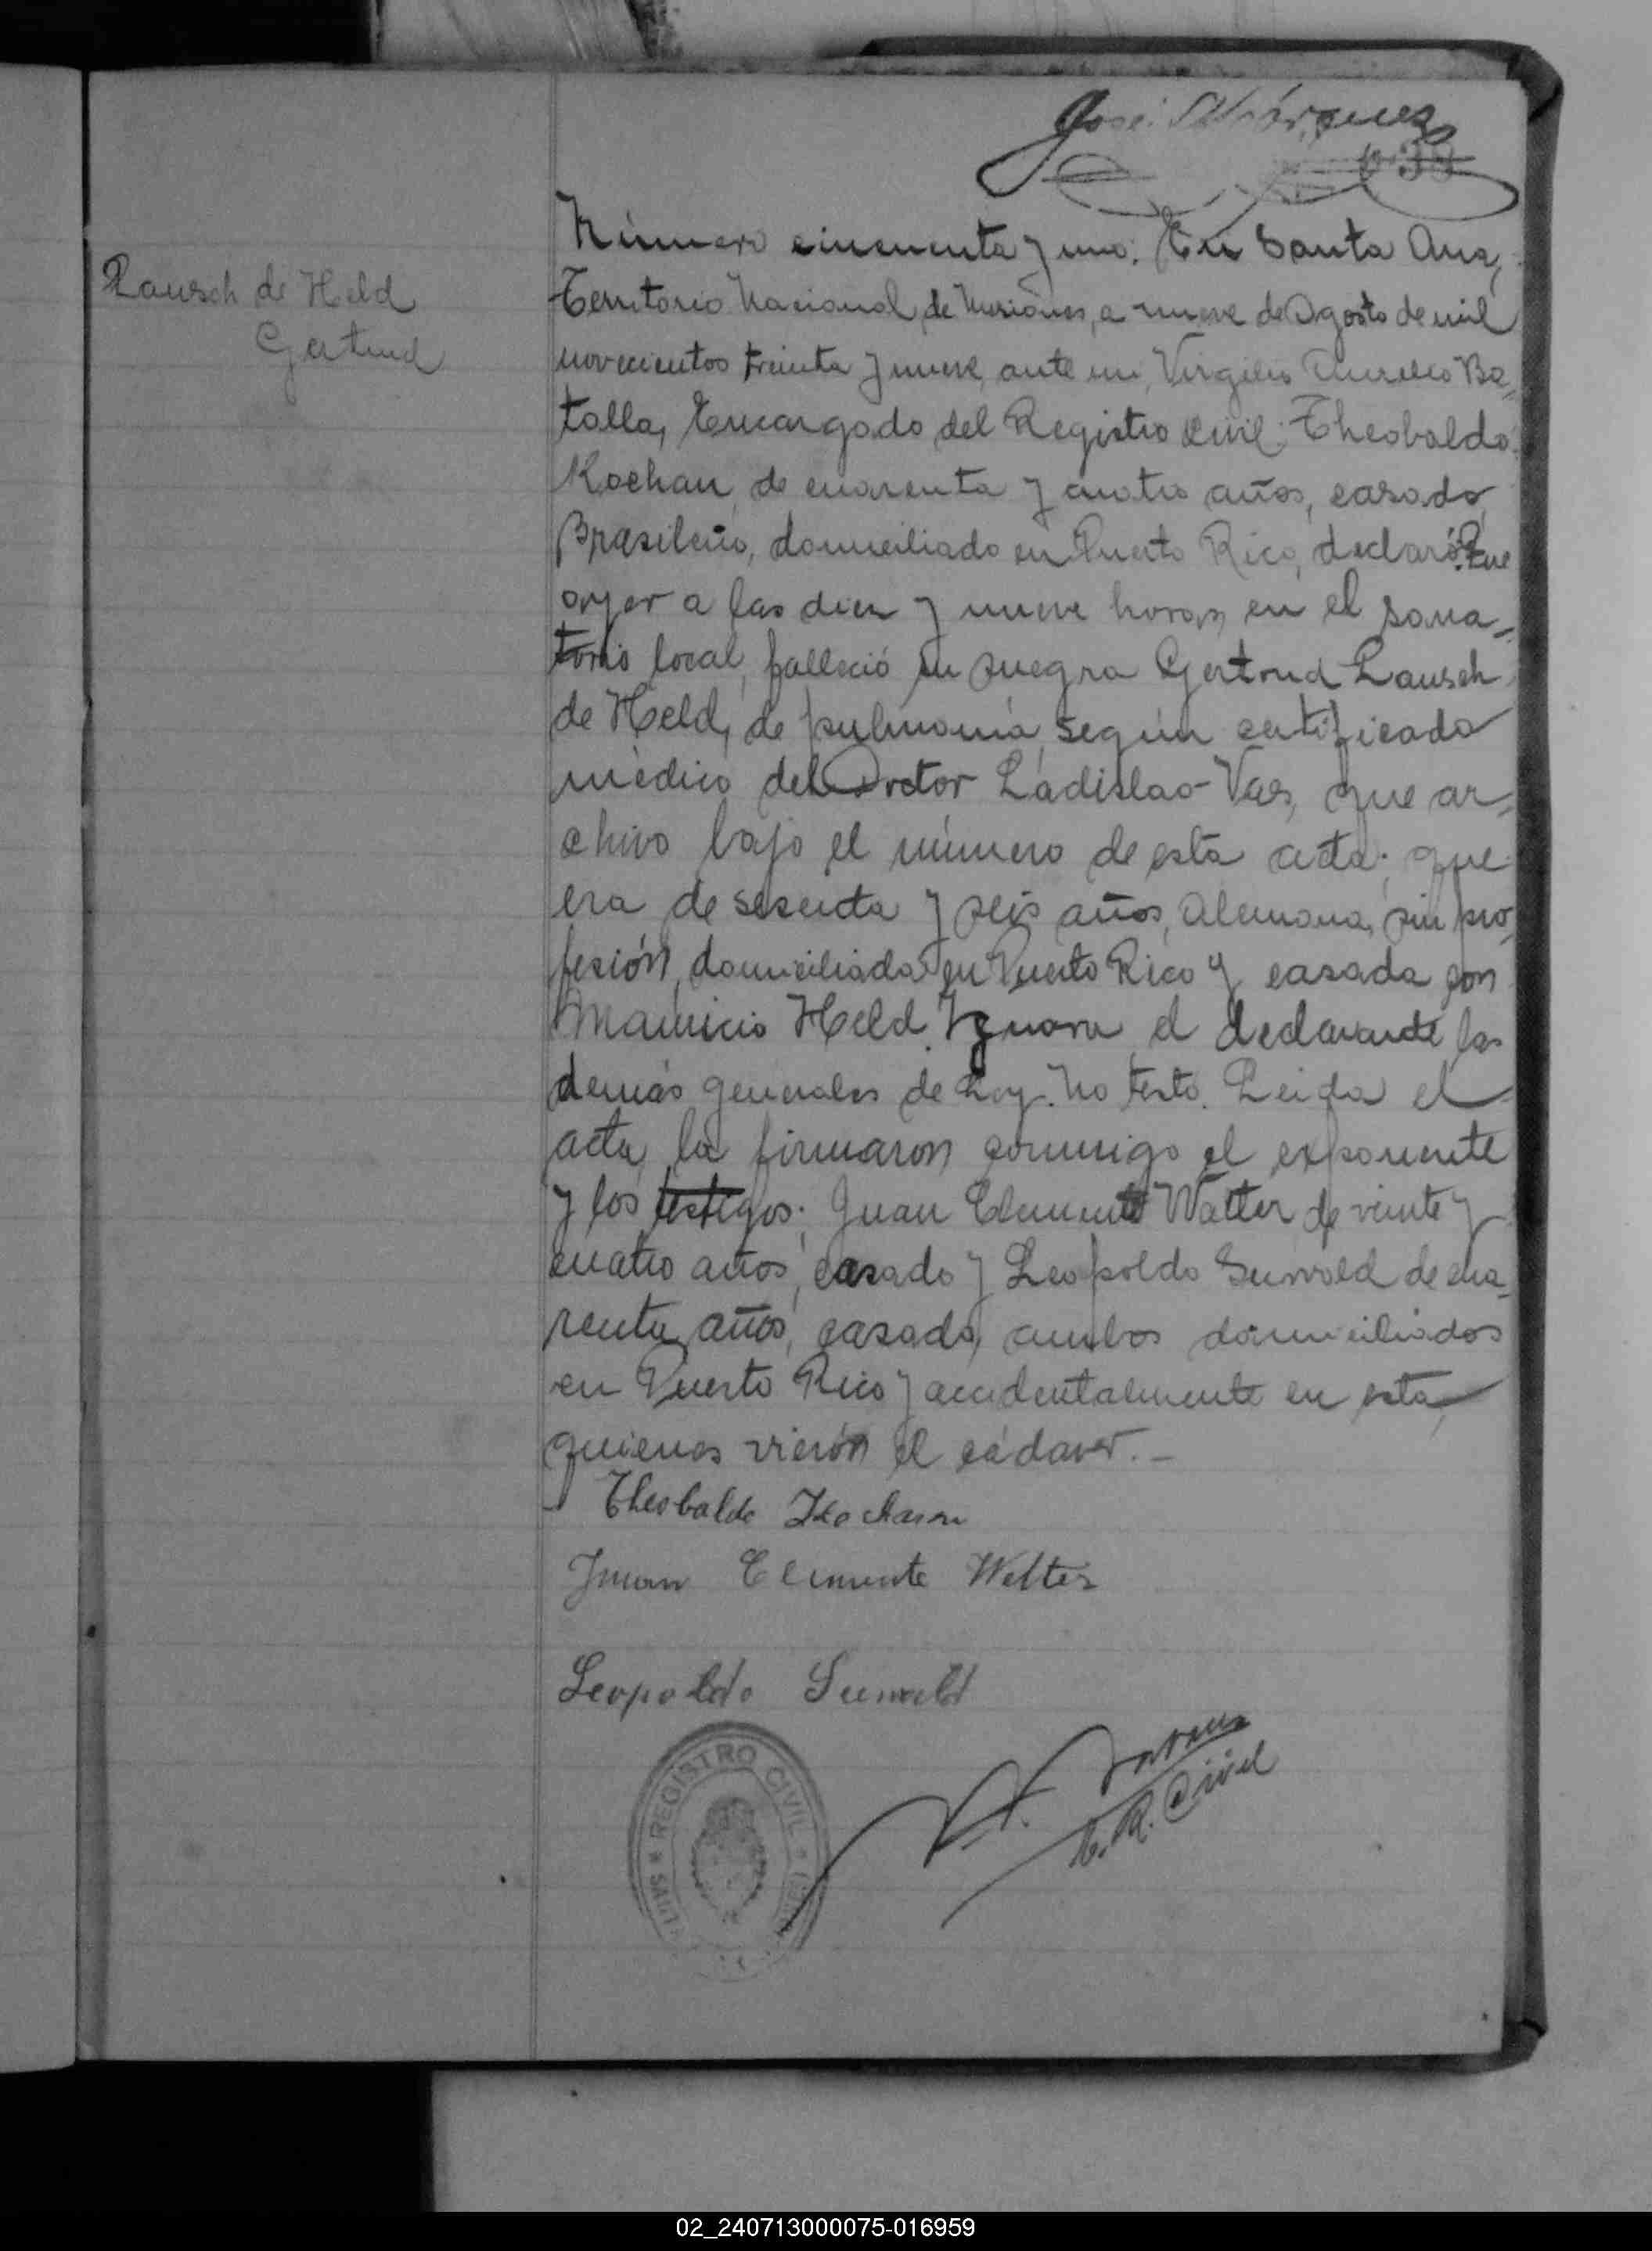 José Márquez
039
Lausch de Held
Gertrud
Número cincuenta y uno. En Santa Ana,
Territorio Nacional de Misiones, a nueve de Agosto de mil
novecientos treinta y nueve, ante mi, Virgilio Aurelio Ba-
talla, Encargado del Registro Civil: Theobaldo
Kochan, de cuarenta y cuatro años, casado,
Brasileño, domiciliado en Puerto Rico, declaró: Que
ayer a las diez y nueve horas, en el sana-
torio local, falleció su suegra Gertrud Lausch
de Held, de pulmonía, según certificado
médico del Doctor Ladislao Vas, que ar-
chivo bajo el número de esta acta; que
era de sesenta y seis años, Alemana, sin pro-
fesión, domiciliada en Puerto Rico y casada con
Mauricio Held. Ignora el declarante las
demás generales de Ley. No testó. Leida el
acta, la firmaron conmigo el exponente
y los testigos: Juan Clemente Walter de veinte y
cuatro años, casado y Leopoldo Sunvold de cua-
renta años, casado, ambos domiciliados
en Puerto Rico y accidentalmente en esta,
quienes vieron el cádaver.-
Theobaldo Kochann
Juan Clemente Welter
Leopoldo
E. R. Civil
REGISTRO CIVIL
SANTA
02_240713000075-016959